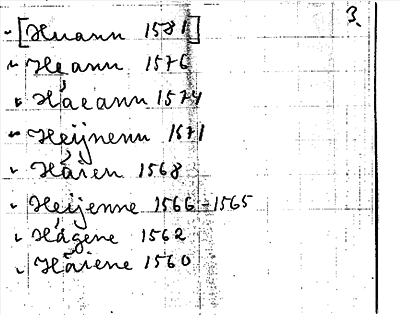 3.
[Huann 1581]
Heann 1576
Háeann 1574
Heijnenn 1571
Håien 1568
Heijenne 1566-1565
Hágene 1562
Håiene 1560